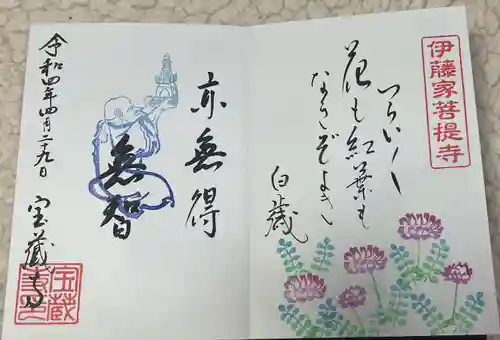 伊藤家菩提寺
つらい〳〵
花も紅葉も
なきぞよき
白蔵
亦無得
無智
令和四年四月二十九日
宝蔵寺
宝蔵